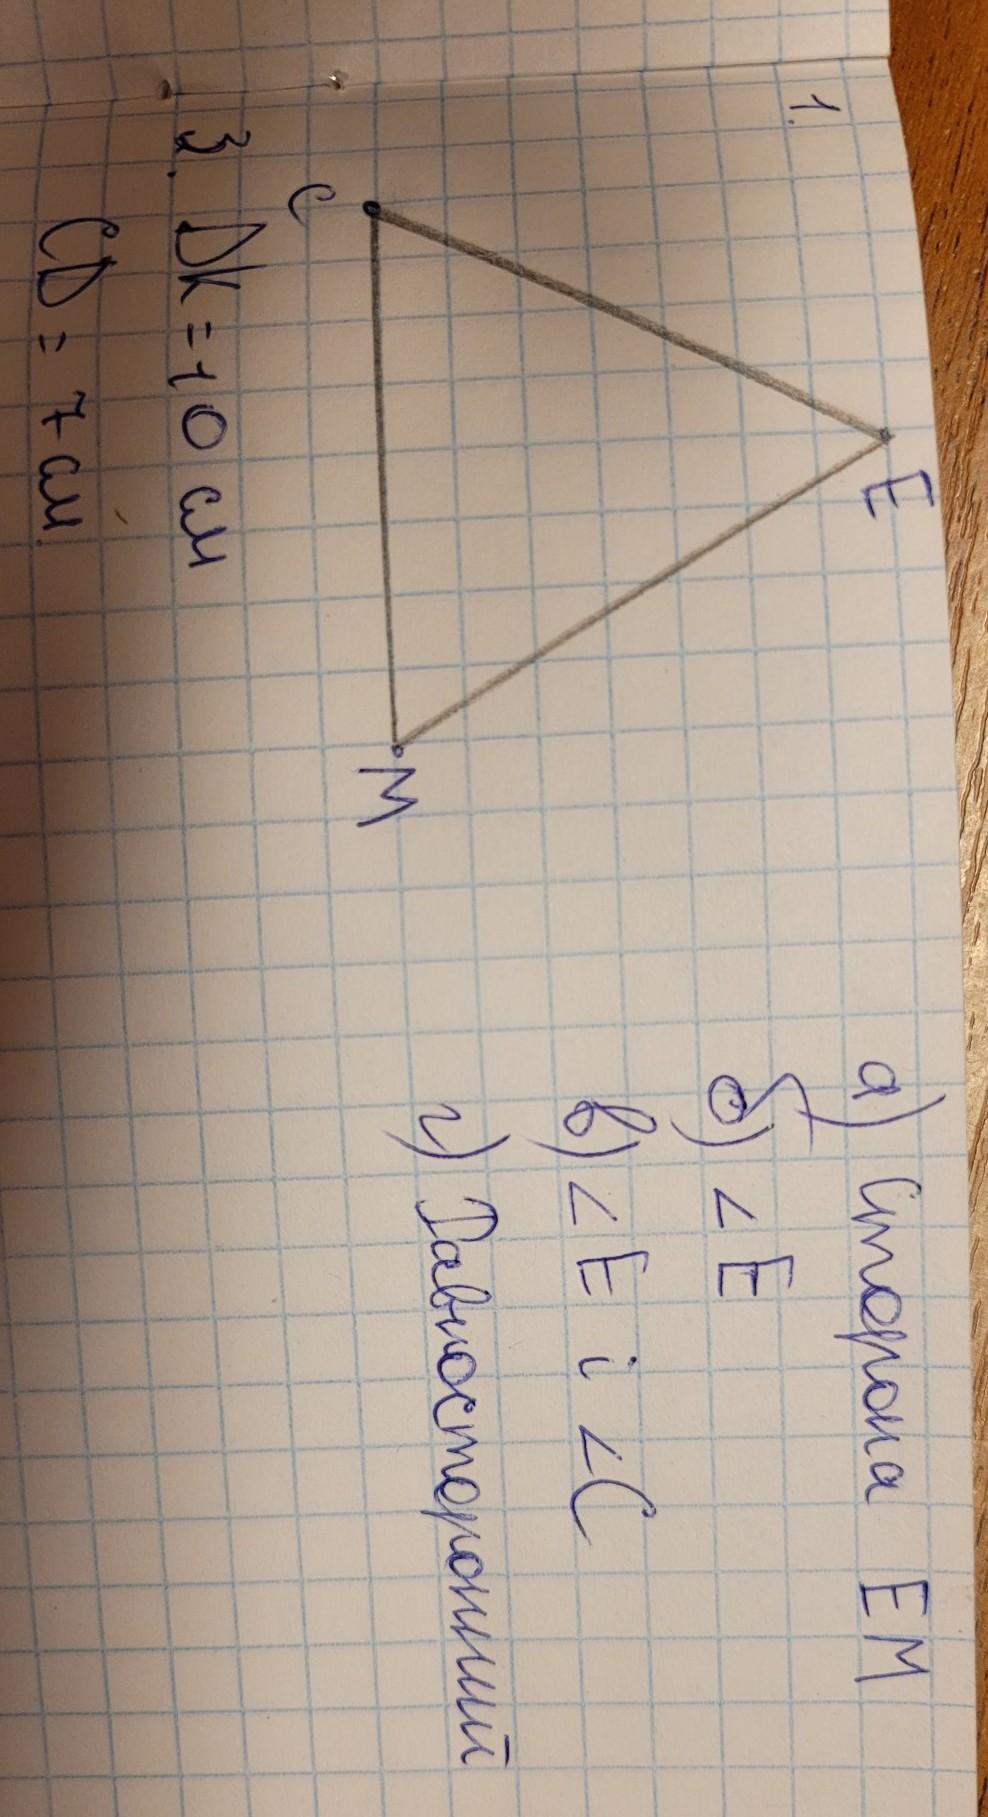 1.
E
C
M
а) Сторона EM
б) <E
в) <E i <C
г) Равносторонний
3. DK = 10 см
CD = 7 см